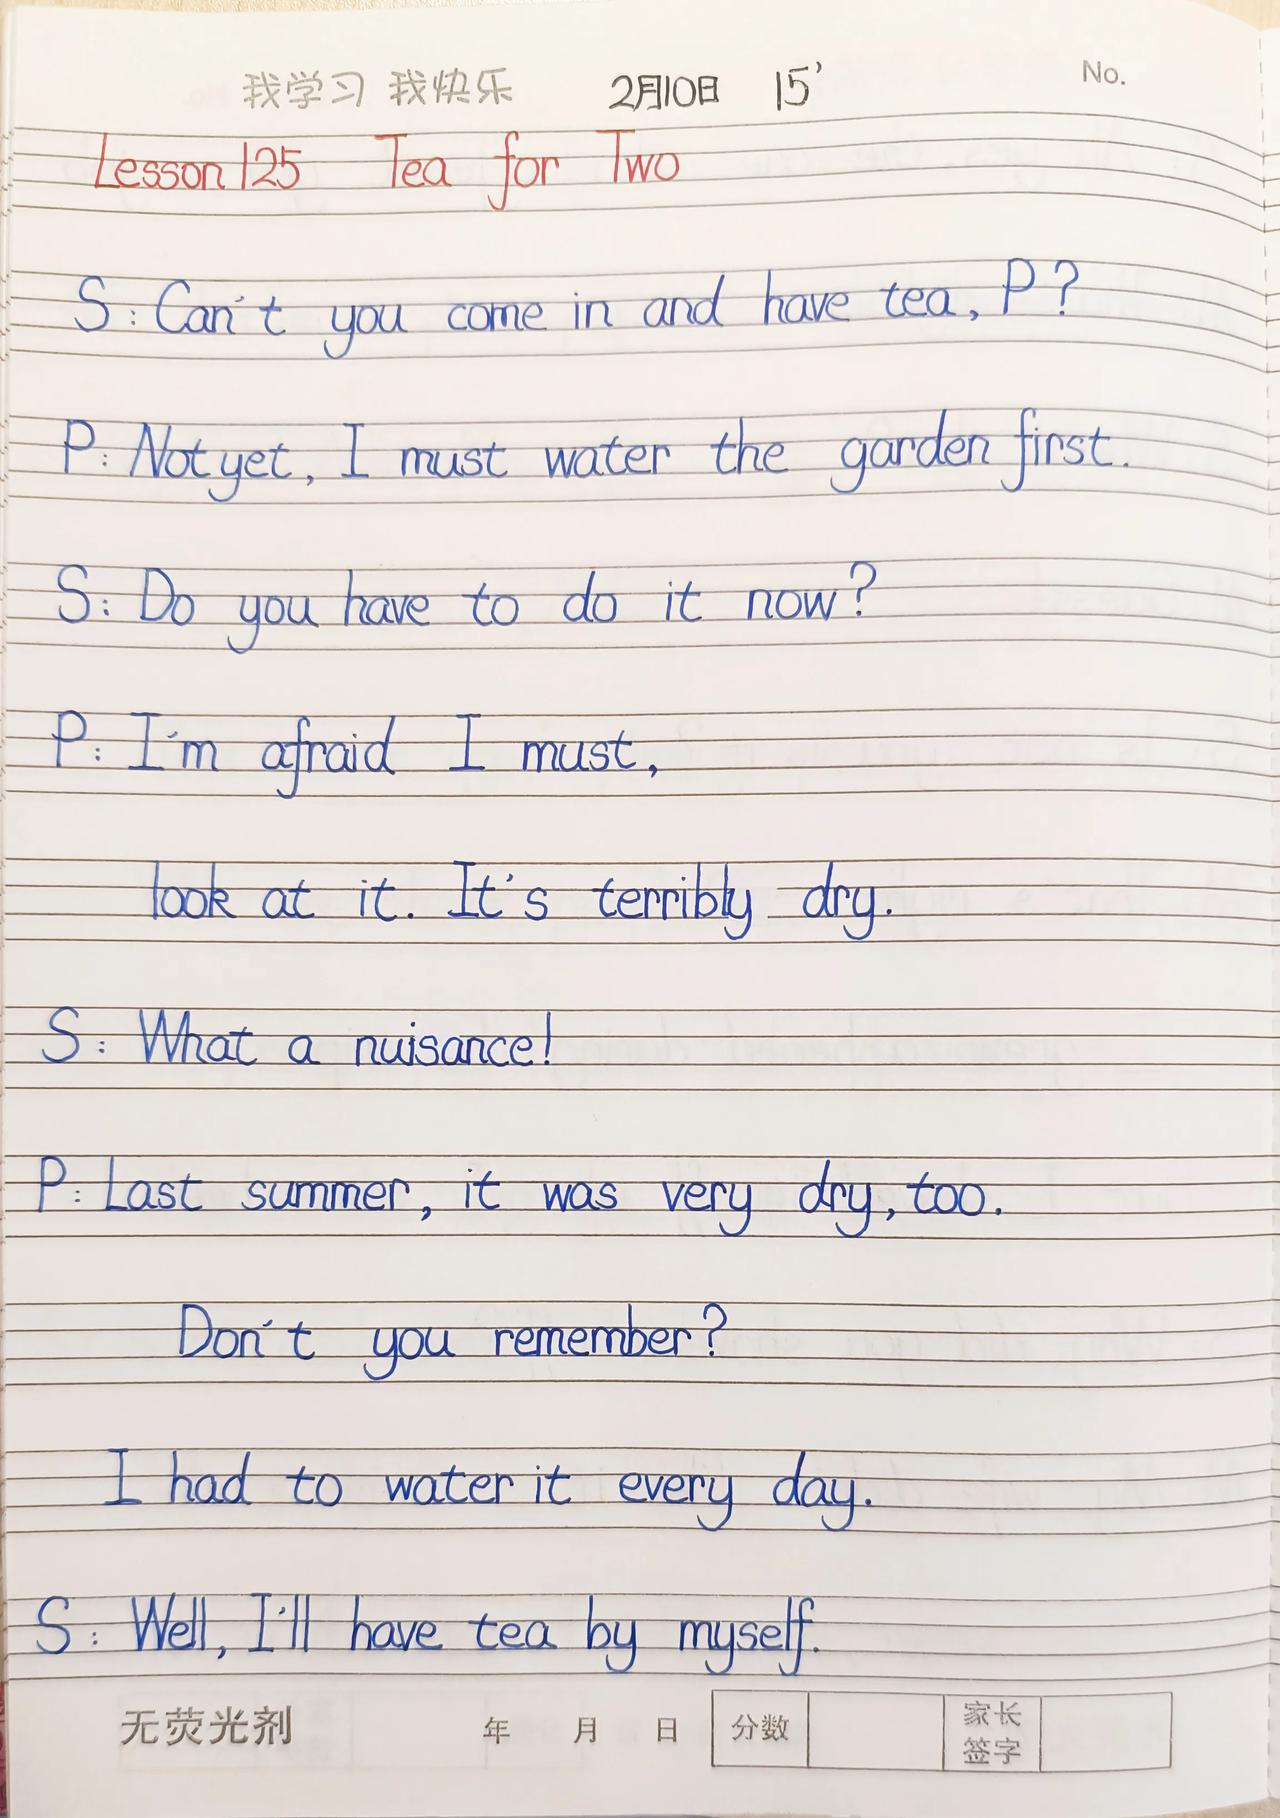 我学习 我快乐 2月10日 15' No.
Lesson 125 Tea for Two
S: Can't you come in and have tea, P?
P: Not yet, I must water the garden first.
S: Do you have to do it now?
P: I'm afraid I must,
look at it. It's terribly dry.
S: What a nuisance!
P: Last summer, it was very dry, too.
Don't you remember?
I had to water it every day.
S: Well, I'll have tea by myself.
无荧光剂 年 月 日 分数 家长签字